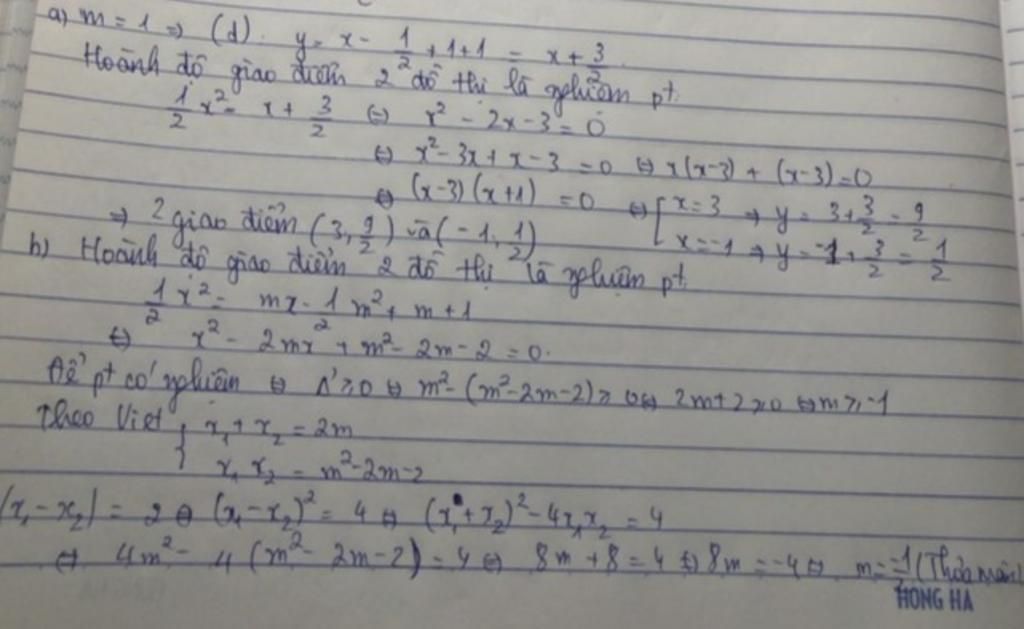 a) m = 1 => (d). y = x - 1/2 + 1 + 1 = x + 3/2
Hoành độ giao điểm 2 đồ thị là nghiệm pt
1/2 x² = x + 3/2 (=) x² - 2x - 3 = 0
⇔ x² - 3x + x - 3 = 0 ⇔ x(x-3) + (x-3) = 0
⇔ (x-3)(x+1) = 0 ⇔ [ x = 3 → y = 3 + 3/2 = 9/2
x = -1 → y = -1 + 3/2 = 1/2
=> 2 giao điểm (3, 9/2) và (-1, 1/2)
b) Hoành độ giao điểm 2 đồ thị là nghiệm pt
1/2 x² = mx - 1/2 m² + m + 1
⇔ x² - 2mx + m² - 2m - 2 = 0.
Để pt có nghiệm ⇔ Δ' ≥ 0 ⇔ m² - (m² - 2m - 2) ≥ 0 ⇔ 2m + 2 ≥ 0 ⇔ m ≥ -1
Theo Viet { x₁ + x₂ = 2m
x₁ x₂ = m² - 2m - 2
|x₁ - x₂| = 2 ⇔ (x₁ - x₂)² = 4 ⇔ (x₁ + x₂)² - 4x₁x₂ = 4
⇔ 4m² - 4(m² - 2m - 2) = 4 ⇔ 8m + 8 = 4 ⇔ 8m = -4 ⇔ m = -1/2 (Thỏa mãn)
HONG HA